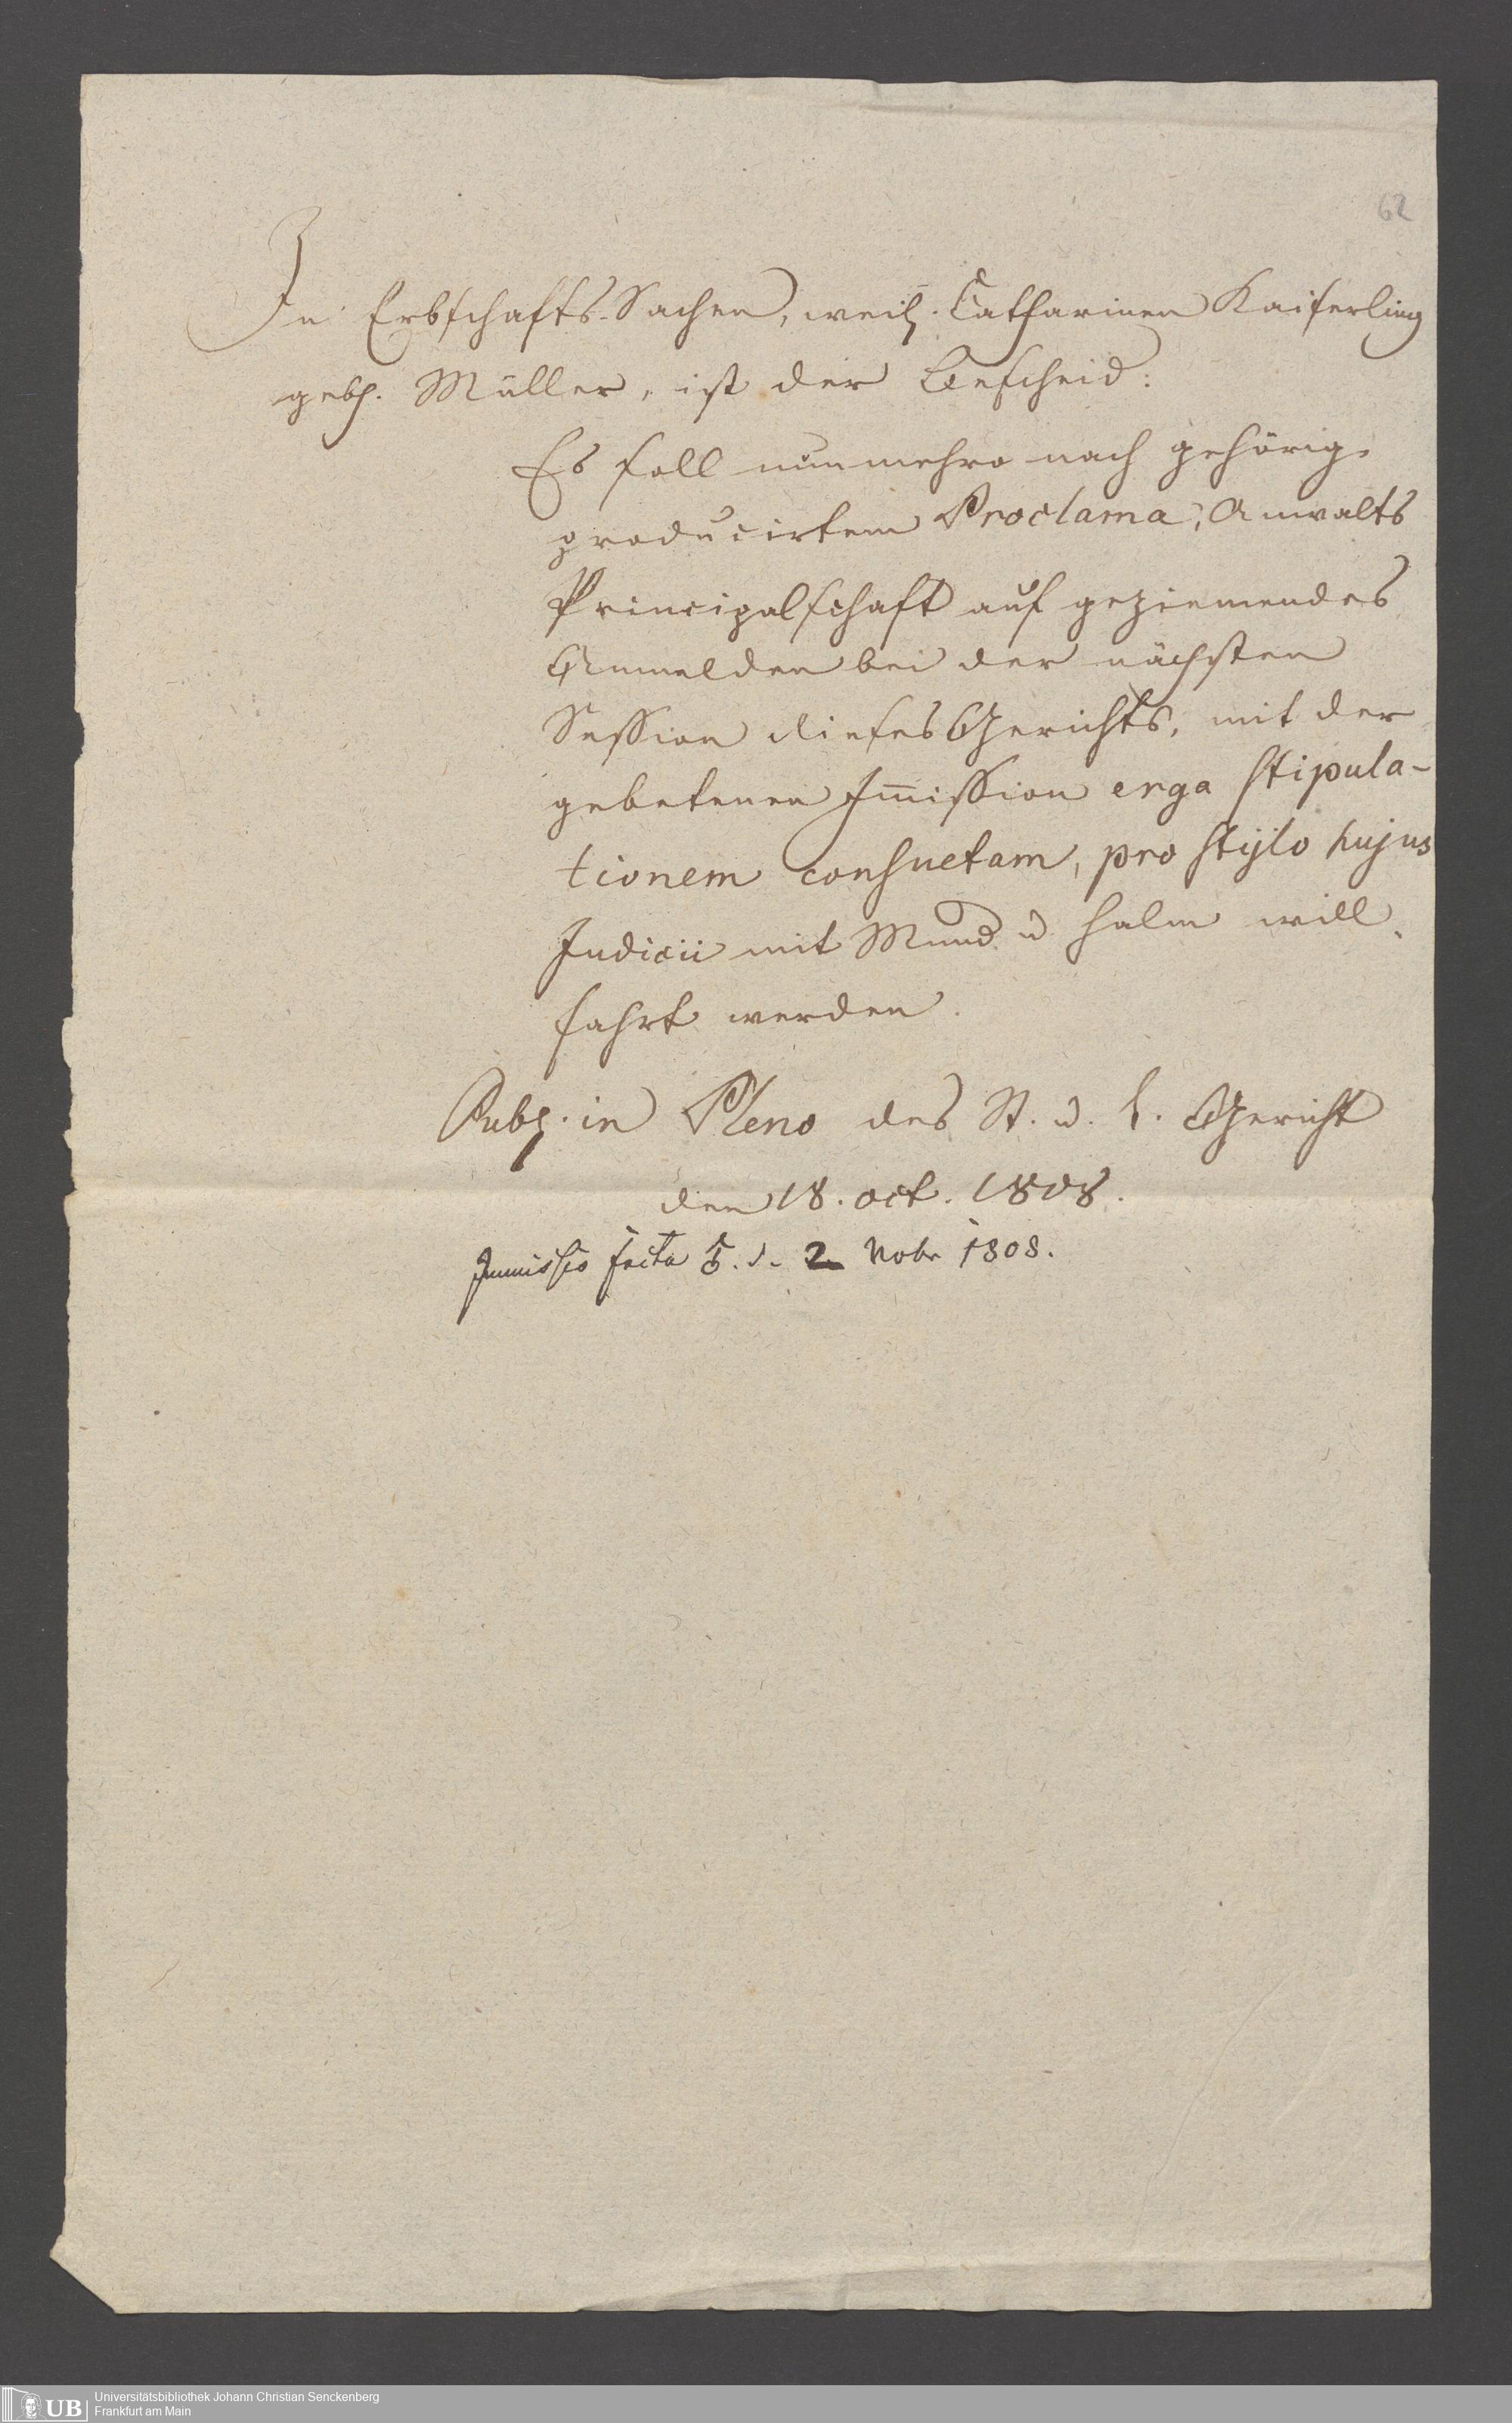 62
In Erbschafts-Sachen, weil. Catharinen Kaiserling
geb. Müller, ist der Bescheid:
Es soll nunmehro nach gehörig
producirtem Proclama, Anwalts
Principalschaft auf geziemendes
Anmelden bei der nächsten
Session dieses Gerichts, mit der
gebetenen Im̄ission erga stipula-
tionem consuetam, pro stylo hujus
Judicii mit Mund u. Halm will-
fahrt werden.
Publ. in Pleno des St. u. L. Gericht
den 18. oct. 1808.
Immissio facta d. 2 Nobr 1808.
Universitätsbibliothek Johann Christian Senckenberg
Frankfurt am Main
UB